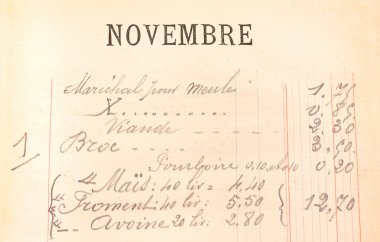 NOVEMBRE
Maréchal pour meule 1.
X
Viande
1/ Broc .50
Pourboire 0.10 0.10 0,20
Maïs: 40 liv = 4.40
Froment: 40 liv: 5.50 12,70
Avoine 20 liv: 2.80